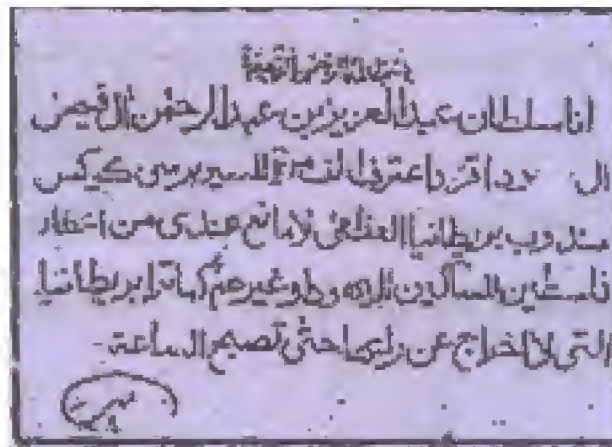 بسم الله الرحمن الرحيم
انا سلطان عبدالعزيز بن عبدالرحمن ال فيصل
ال سعود اقر واعترف الف مرة للسير برسى كوكس
مندوب بريطانيا العظمى لا مانع عندى من اعطاء
فلسطين للمساكين اليهود وغيرهم كما ترا بريطانيا
التى لا اخراج عن رايها حتى تصبح الساعة -